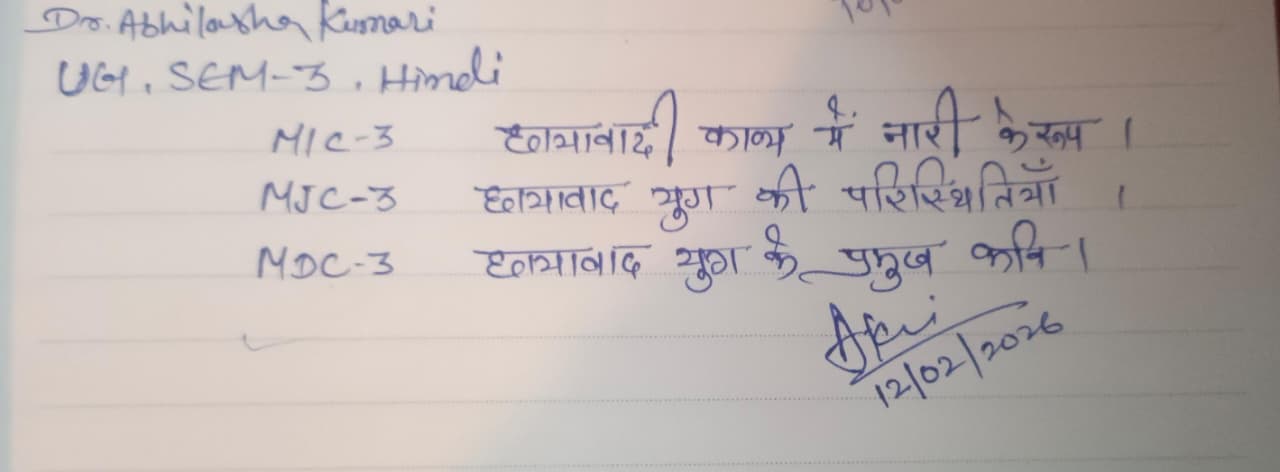 Dr. Abhilasha Kumari
UG. SEM-3. Hindi
MIC-3 छायावादी काव्य में नारी के रूप ।
MJC-3 छायावाद युग की परिस्थितियाँ ।
MDC-3 छायावाद युग के प्रमुख कवि ।
12/02/2026